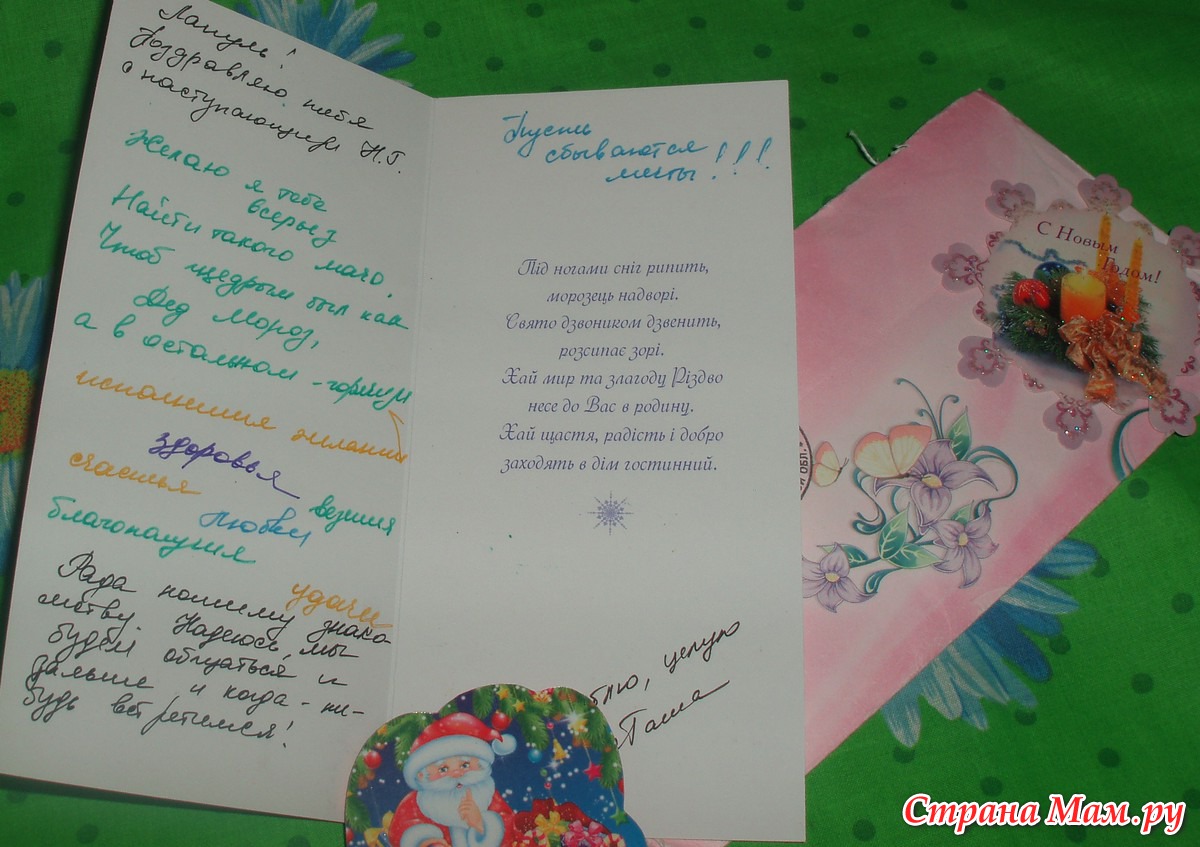 Лапуль!
Поздравляю тебя
с наступающим Н.Г.
Желаю я тебе
всерьёз
Найти такого мачо,
Чтоб щедрым был как
Дед Мороз,
а в остальном - горячим
исполнения желаний
здоровья
счастья
везения
любви
благополучия
удачи
Рада нашему знаком-
ству. Надеюсь, мы
будем общаться и
дальше и когда-ни-
будь встретимся!
Пусть
сбываются
мечты!!!
Під ногами сніг рипить,
морозець надворі.
Свято дзвоником дзвенить,
розсипає зорі.
Хай мир та злагоду Різдво
несе до Вас в родину.
Хай щастя, радість і добро
заходять в дім гостинний.
целую
С Новым
Годом!
ОБЛ.*
Страна Мам.ру